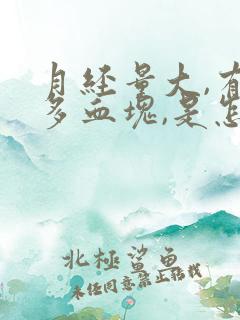 月經量大,有
多血塊,是怎
北極鯊魚
未经同意禁止转载